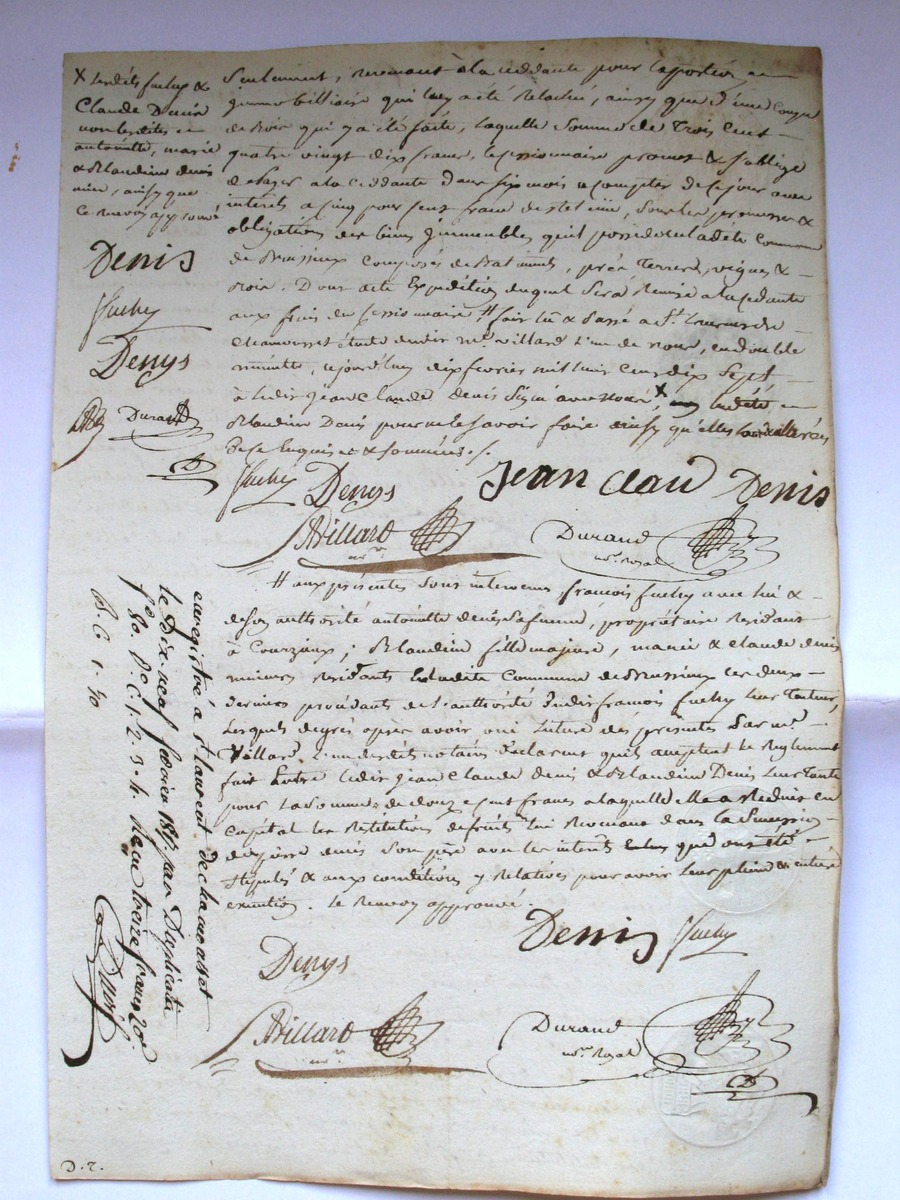 X lesdits fuchy &
Claude Denis
non lesdites
antoinette, marie
& Blandine denis
ainsy que
ce renvoy approuvé
Denis
fuchy
Denys
Durand
D
Seulement, revenant à la ceddante pour la portion
immobilliaire qui luy a été relaché, ainsy que d'une coupe
de bois qui y a été faite, laquelle somme de trois cent
quatre vingt dix francs, le cessionnaire promet & s'oblige
de payer a la ceddante dans six mois a compter de ce jour avec
interets a cinq pour cent franc de retenüe, sous les promesses &
obligations des biens immeubles qu'il possede en ladite commune
de Brussieux composés de Batiments, prés terres, vignes &
bois. Dont acte Expédition duquel sera remise a la cedante
aux frais du cessionnaire // fait lû & passé a St. Laurent de
chamousset étude dudit me. villard l'un de nous, en double
minutte, ajourd'huy dix fevrier mil huit cent dix sept
à ledit jean claude denis signé avec nous, X
Blandine Denis pour ne le savoir faire ainsy qu'elles l'ont déclaré
de ce Enquises & sommées ./.
fuchy Denys Jean Claud Denis
Villard nre. Durand nre. Royal
// aux présentes sont intervenus françois fuchy avec lui &
de son authorité antoinette denis sa femme, propriétaire Résidant
à Courzieux; Blandine fille majeure, marie & claude denis
mineurs résidants En ladite Commune de Brussieux ces deux
derniers procédants de l'authorité dudit françois fuchy leur tuteur,
Lesquels degrés après avoir oui lecture des présentes par me.
Villard l'un desdits notaires déclarent qu'ils acceptent le Reglement
fait Entre ledit jean Claude denis & Blandine Denis leur tante
pour la somme de douze cent francs a laquelle elle a Réduit en
capital les Restitutions de fruits lui Revenant dans la Succession
de pierre denis son père avec les interets telles que ont été
stipulés & aux conditions y Relatives pour avoir leur pleine & entiere
exécution. le Renvoy approuvé.
Denis fuchy
Denys
Villard nre. Durand nre. Royal
D
enregistré à st laurent de chamousset
le dix neuf fevrier 1817 par Duplicata
fo. 80. Ro. C. 1. 2. 3. 4. Reçu treize francs 20c.
B. C. 1. 40
D. 2.